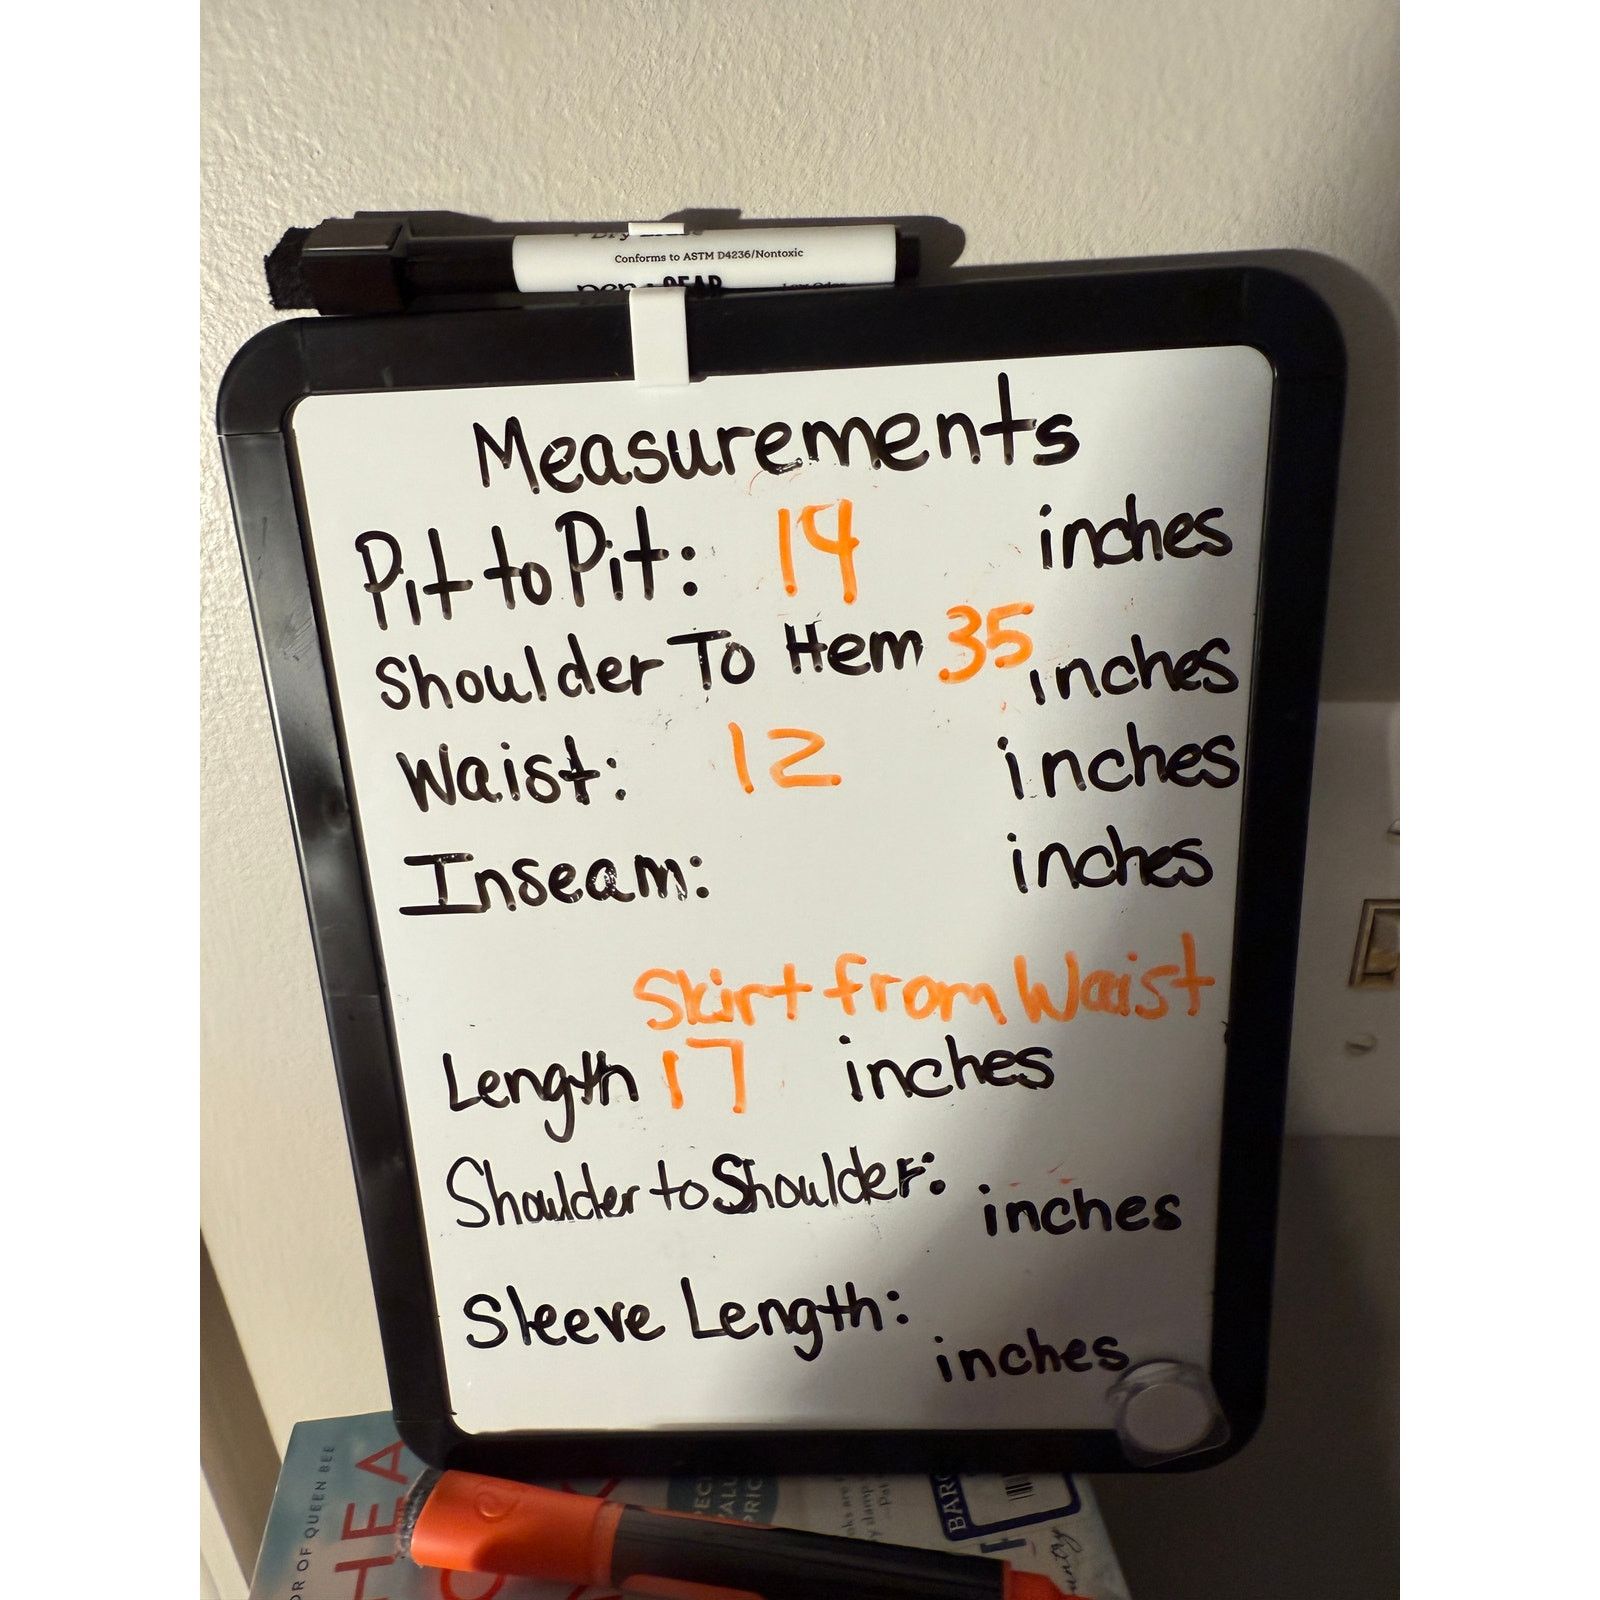 Conforms to ASTM D4236/Nontoxic
Measurements
Pit to Pit: 14 inches
Shoulder To Hem 35 inches
Waist: 12 inches
Inseam: inches
Skirt from Waist
Length 17 inches
Shoulder to Shoulder: inches
Sleeve Length: inches
OR OF QUEEN BEE
HEA